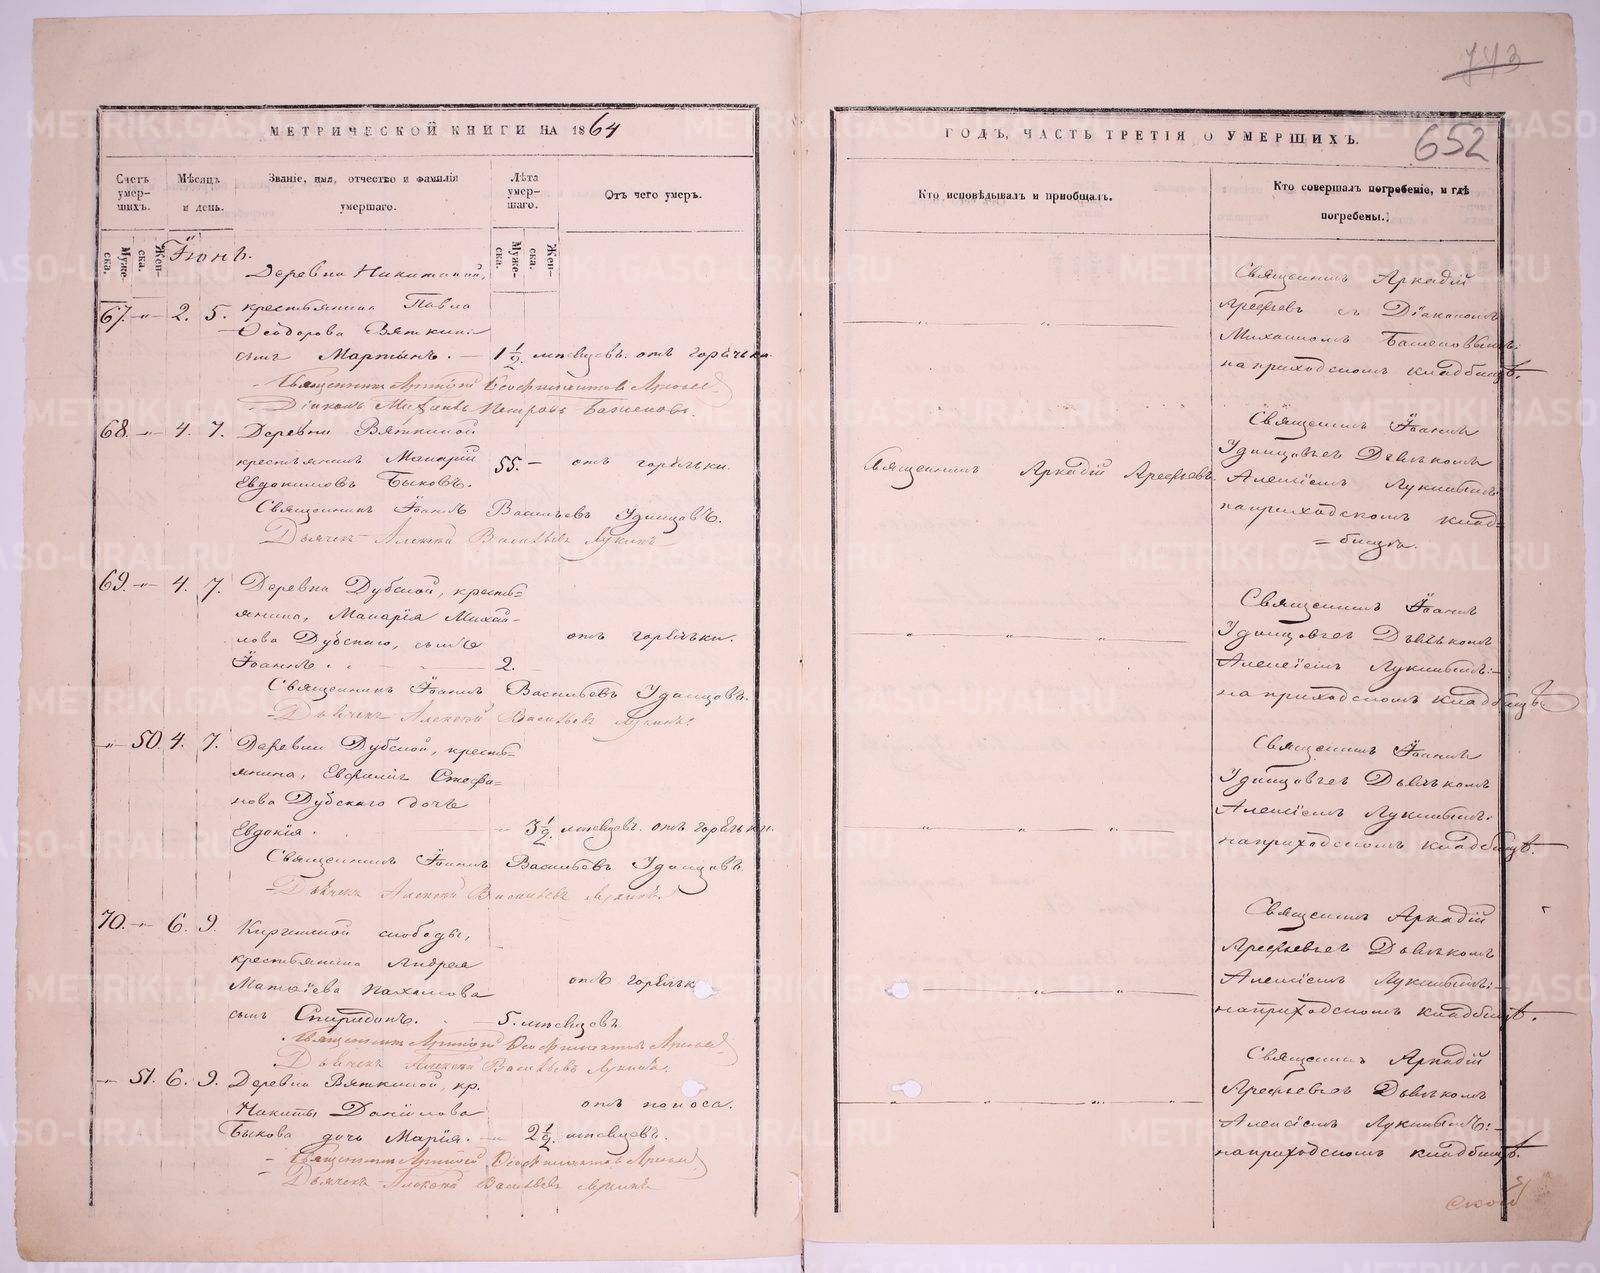 743
МЕТРИЧЕСКОЙ КНИГИ НА 1864
Счетъ умер- шихъ.
Мѣсяцъ и день.
Званіе, имя, отчество и фамилія умершаго.
Лѣта умер- шаго.
Отъ чего умеръ.
Муже- ска.
Жен- ска.
Муже- ска.
Жен- ска.
Іюнь.
Деревни Никитиной,
67. -„- 2. 5. крестьянина Павла
Ѳеодорова Вяткина
сынъ Мартынъ. — 1 1/2. мѣсяцевъ. отъ горячки.
Священникъ Аркадій Арефьевъ
Діаконъ Михаилъ Петровъ Баженовъ.
68. -„- 4. 7. Деревни Вяткиной
крестьянинъ Макарій 55. — отъ горячки.
Евдокимовъ Быковъ.
Священникъ Іоаннъ Васильевъ Удинцовъ.
Дьячекъ Алексѣй Васильевъ Лукинъ
69. -„- 4. 7. Деревни Дубской, кресть=
янина, Макарія Михай-
лова Дубскаго, сынъ отъ горячки.
Іоаннъ. — 2.
Священникъ Іоаннъ Васильевъ Удинцовъ.
Дьячекъ Алексѣй Васильевъ Лукинъ.
-„- 50. 4. 7. Деревни Дубской, кресть=
янина, Стефа=
нова Дубскаго дочь
Евдокія. — 3 1/2. мѣсяцевъ. отъ горячки.
Священникъ Іоаннъ Васильевъ Удинцовъ.
Дьячекъ Алексѣй Васильевъ Лукинъ.
70. -„- 6. 9. Киргишной слободы,
крестьянина Андрея
Матѳіева Пахомова отъ горячк
сынъ Спиридонъ. — 5. мѣсяцевъ
Священникъ Аркадій Арефьевъ
Дьячекъ Алексѣй Васильевъ Лукинъ.
-„- 51. 6. 9. Деревни Вяткиной, кр.
Никиты Данилова отъ поноса.
Быкова дочь Марія. — 2 1/2. мѣсяцевъ.
Священникъ Аркадій Арефьевъ
Дьячекъ Алексѣй Васильевъ Лукинъ
ГОДЪ, ЧАСТЬ ТРЕТІЯ О УМЕРШИХЪ.
652
Кто исповѣдывалъ и пріобщалъ.
Кто совершалъ погребеніе, и гдѣ погребены.
Священникъ Аркадій
Арефьевъ съ Діакономъ
Михаиломъ Баженовымъ.
на приходскомъ кладбищѣ.
Священникъ Аркадій Арефьевъ.
Священникъ Іоаннъ
Удинцовъ съ Дьячкомъ
Алексіемъ Лукинымъ.
на приходскомъ клад=
=бищѣ.
Священникъ Іоаннъ
Удинцовъ съ Дьячкомъ
Алексіемъ Лукинымъ:—
на приходскомъ кладбищѣ.
Священникъ Іоаннъ
Удинцовъ съ Дьячкомъ
Алексіемъ Лукинымъ.
на приходскомъ кладбищѣ.
Священникъ Аркадій
Арефьевъ съ Дьячкомъ
Алексіемъ Лукинымъ:—
на приходскомъ кладбищѣ.
Священникъ Аркадій
Арефьевъ съ Дьячкомъ
Алексіемъ Лукинымъ:—
на приходскомъ кладбищѣ.
METRIKI.GASO-URAL.RU